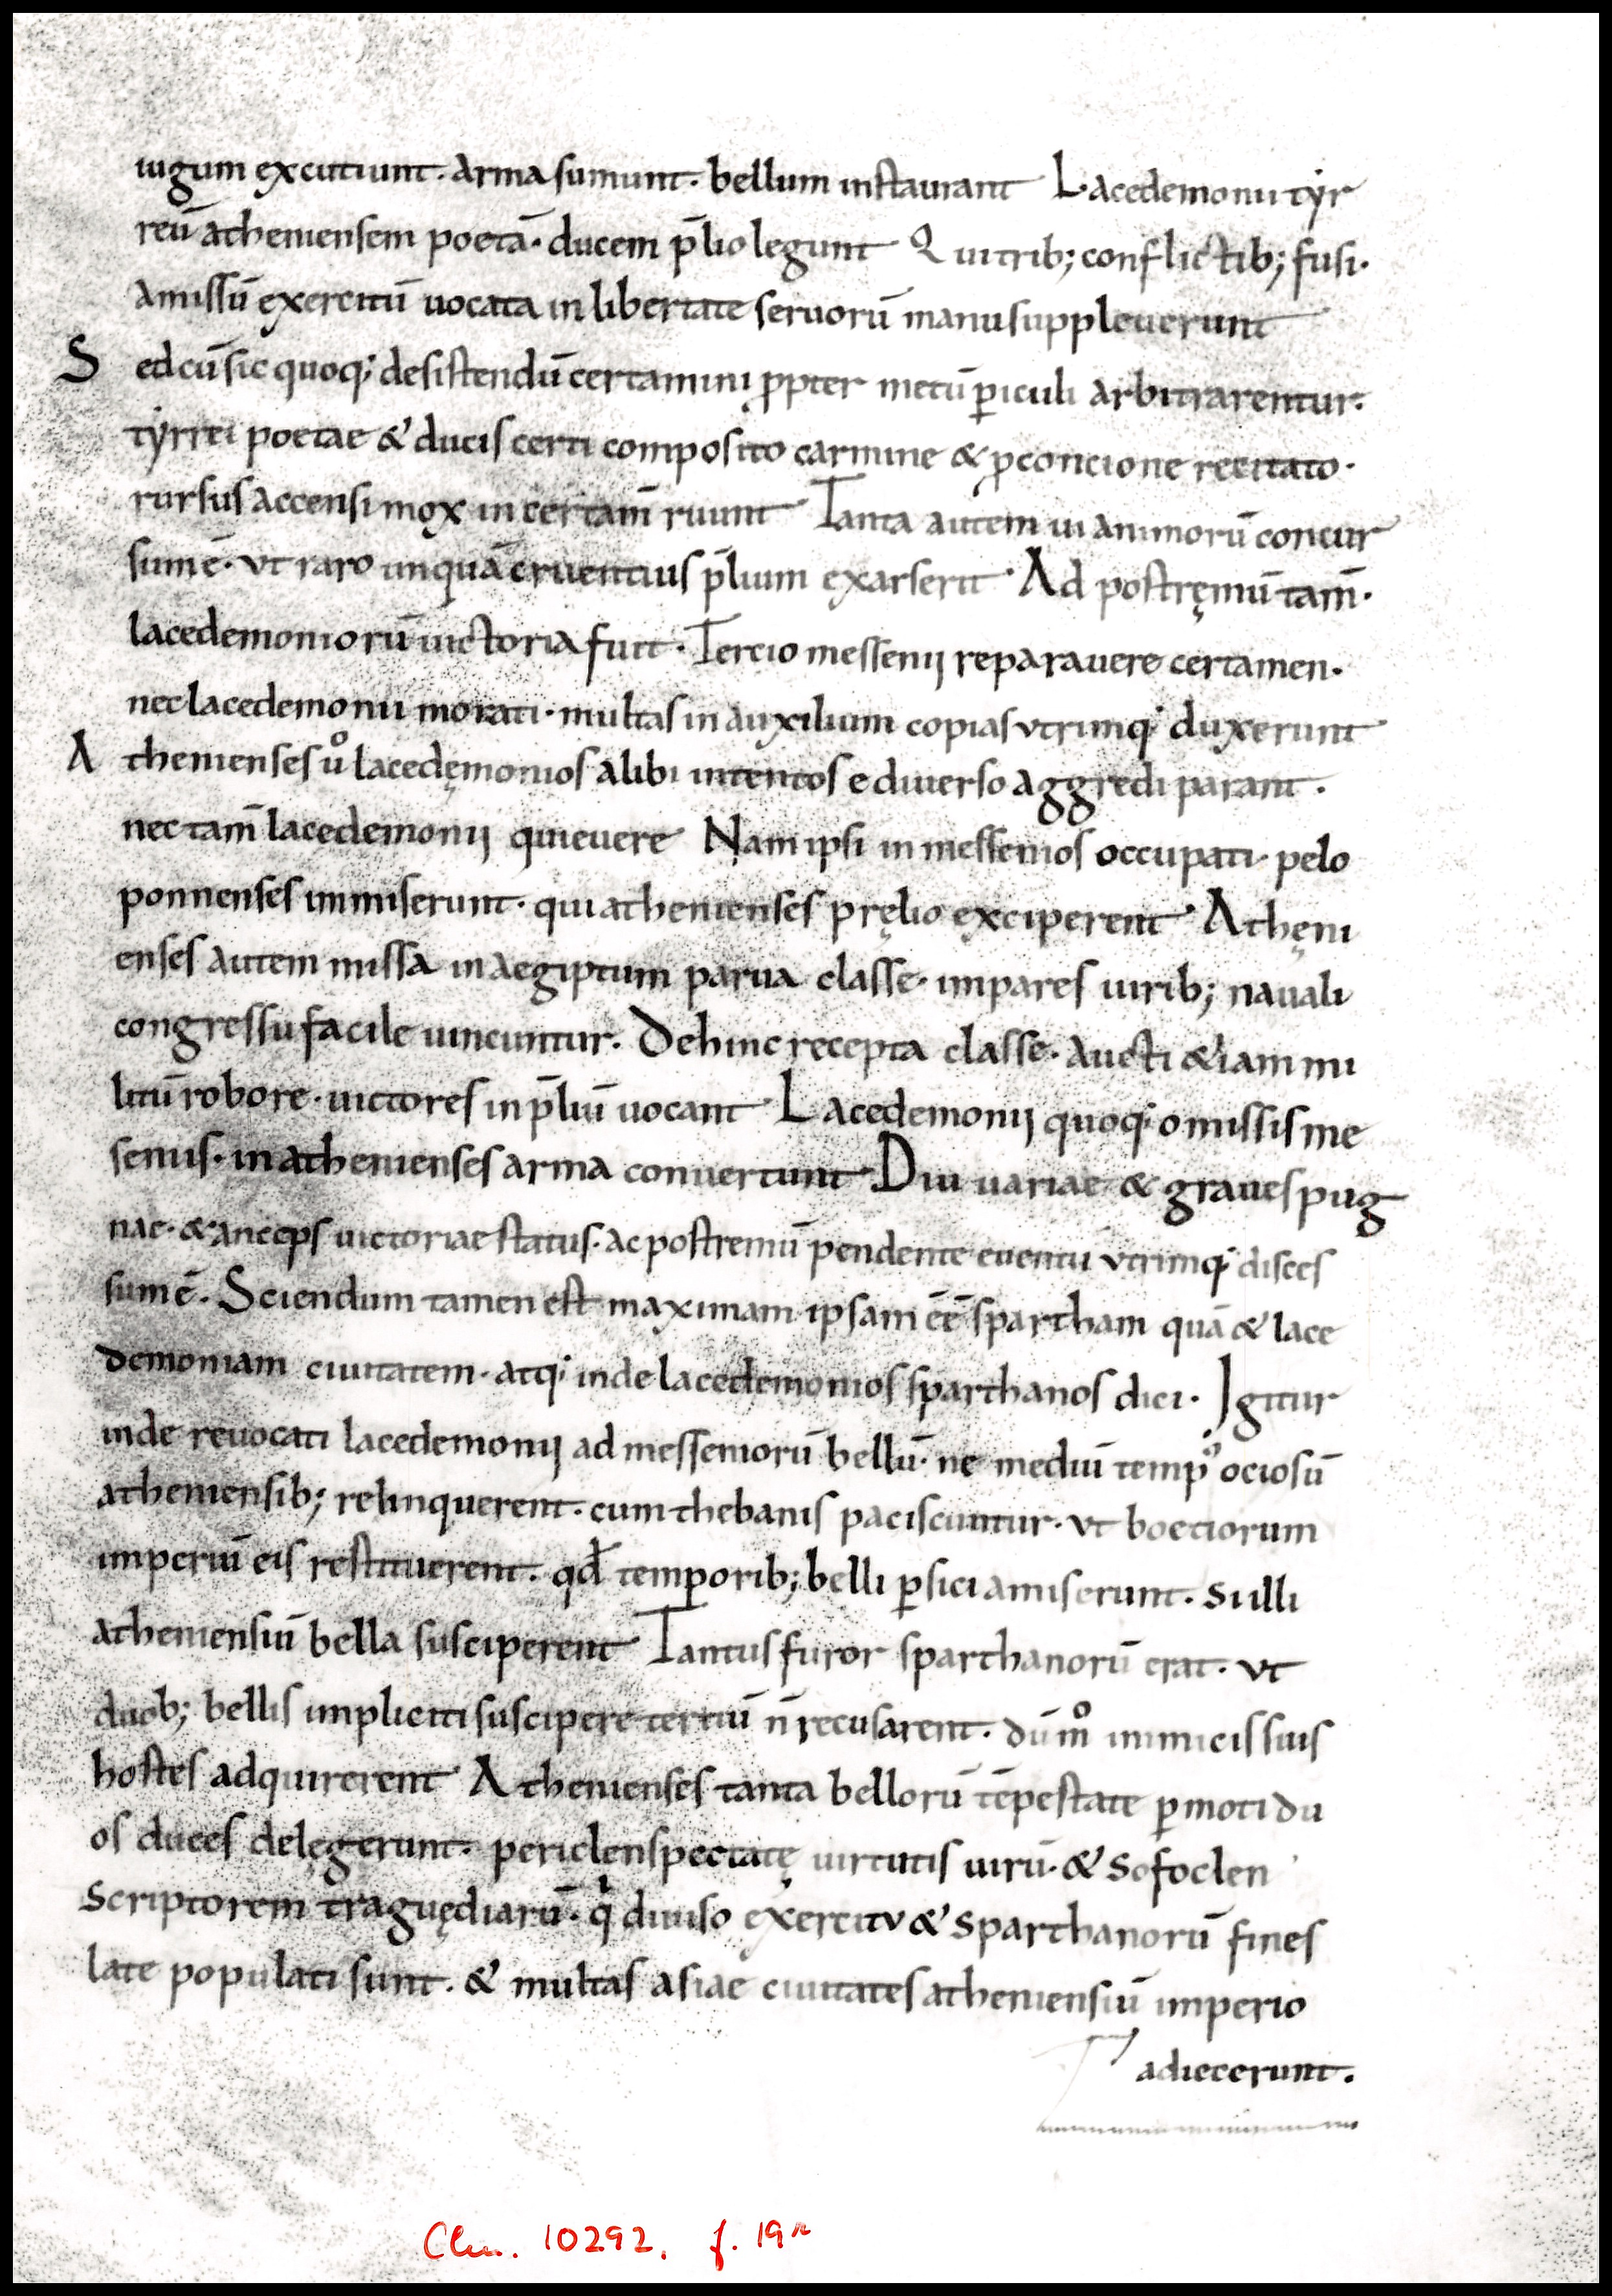 iugum excutiunt · arma sumunt · bellum instaurant Lacedemonii tẏr
reū atheniensem poetā · ducem p̄lio legunt Qui trib; conflictib; fusi ·
amissū exercitū uocata in libertate seruorū manu suppleuerunt
Sed cū sic quoq; desistendū certamini ꝓpter metū ꝑiculi arbitrarentur ·
tẏrrei poetae & ducis certi composito carmine & ꝓ concione recitato ·
rursus accensi mox in certam̄ ruunt Tanta autem ui animorū concur
sum ē · vt raro unquā cruentius p̄lium exarserit · Ad postręmū tam̄ ·
lacedemoniorū uictoria fuit · Tercio messenij reparauere certamen ·
nec lacedemonii morati · multas in auxilium copias vtrimq; duxerunt
Athenienses uº lacedęmonios alibi intentos e diuerso aggredi parant ·
nec tam̄ lacedemonij quieuere Nam ipsi in messenios occupati · pelo
ponnenses immiserunt · qui athenienses pręlio exciperent · Athęni
enses autem missa in aegiptum parua classe · impares uirib; nauali
congressu facile uincuntur · Dehinc recepta classe · aucti & iam mi
litū robore · uictores in p̄liū uocant · Lacedemonij quoq; omissis me
seniis · in athenienses arma conuertunt Diu uariae & graues pug
nae · & anceps uictoriae status · ac postremū pendente euentu vtrimq; disces
sum ē · Sciendum tamen est maximam ipsam ēē spartham quā & lace
demoniam ciuitatem · atq; inde lacedemonios sparthanos dici · Igitur
inde reuocati lacedemonij ad messeniorū bellū · ne mediū temp᾿ ociosū
atheniensib; relinquerent · cum thebanis paciscuntur · vt boetiorum
imperiū eis restituerent · qd̄ temporib; belli ꝑsici amiserunt · si illi
atheniensiū bella susciperent Tantus furor sparthanorū erat · vt
duob; bellis impliciti suscipere tertiū n̄ recusarent · dū mº inimicis suis
hostes adquirerent · Athenienses tanta bellorū tēpestate ꝑmoti du
os duces delęgerunt · periclen spectatę uirtutis uirū · & sofoclen
scriptorem tragUędiarū · qi diuiso exercitv & sparthanorū fines
late populati sunt · & multas asiae ciuitates atheniensiū imperio
adiecerunt ·
Clm. 10292. f. 19r